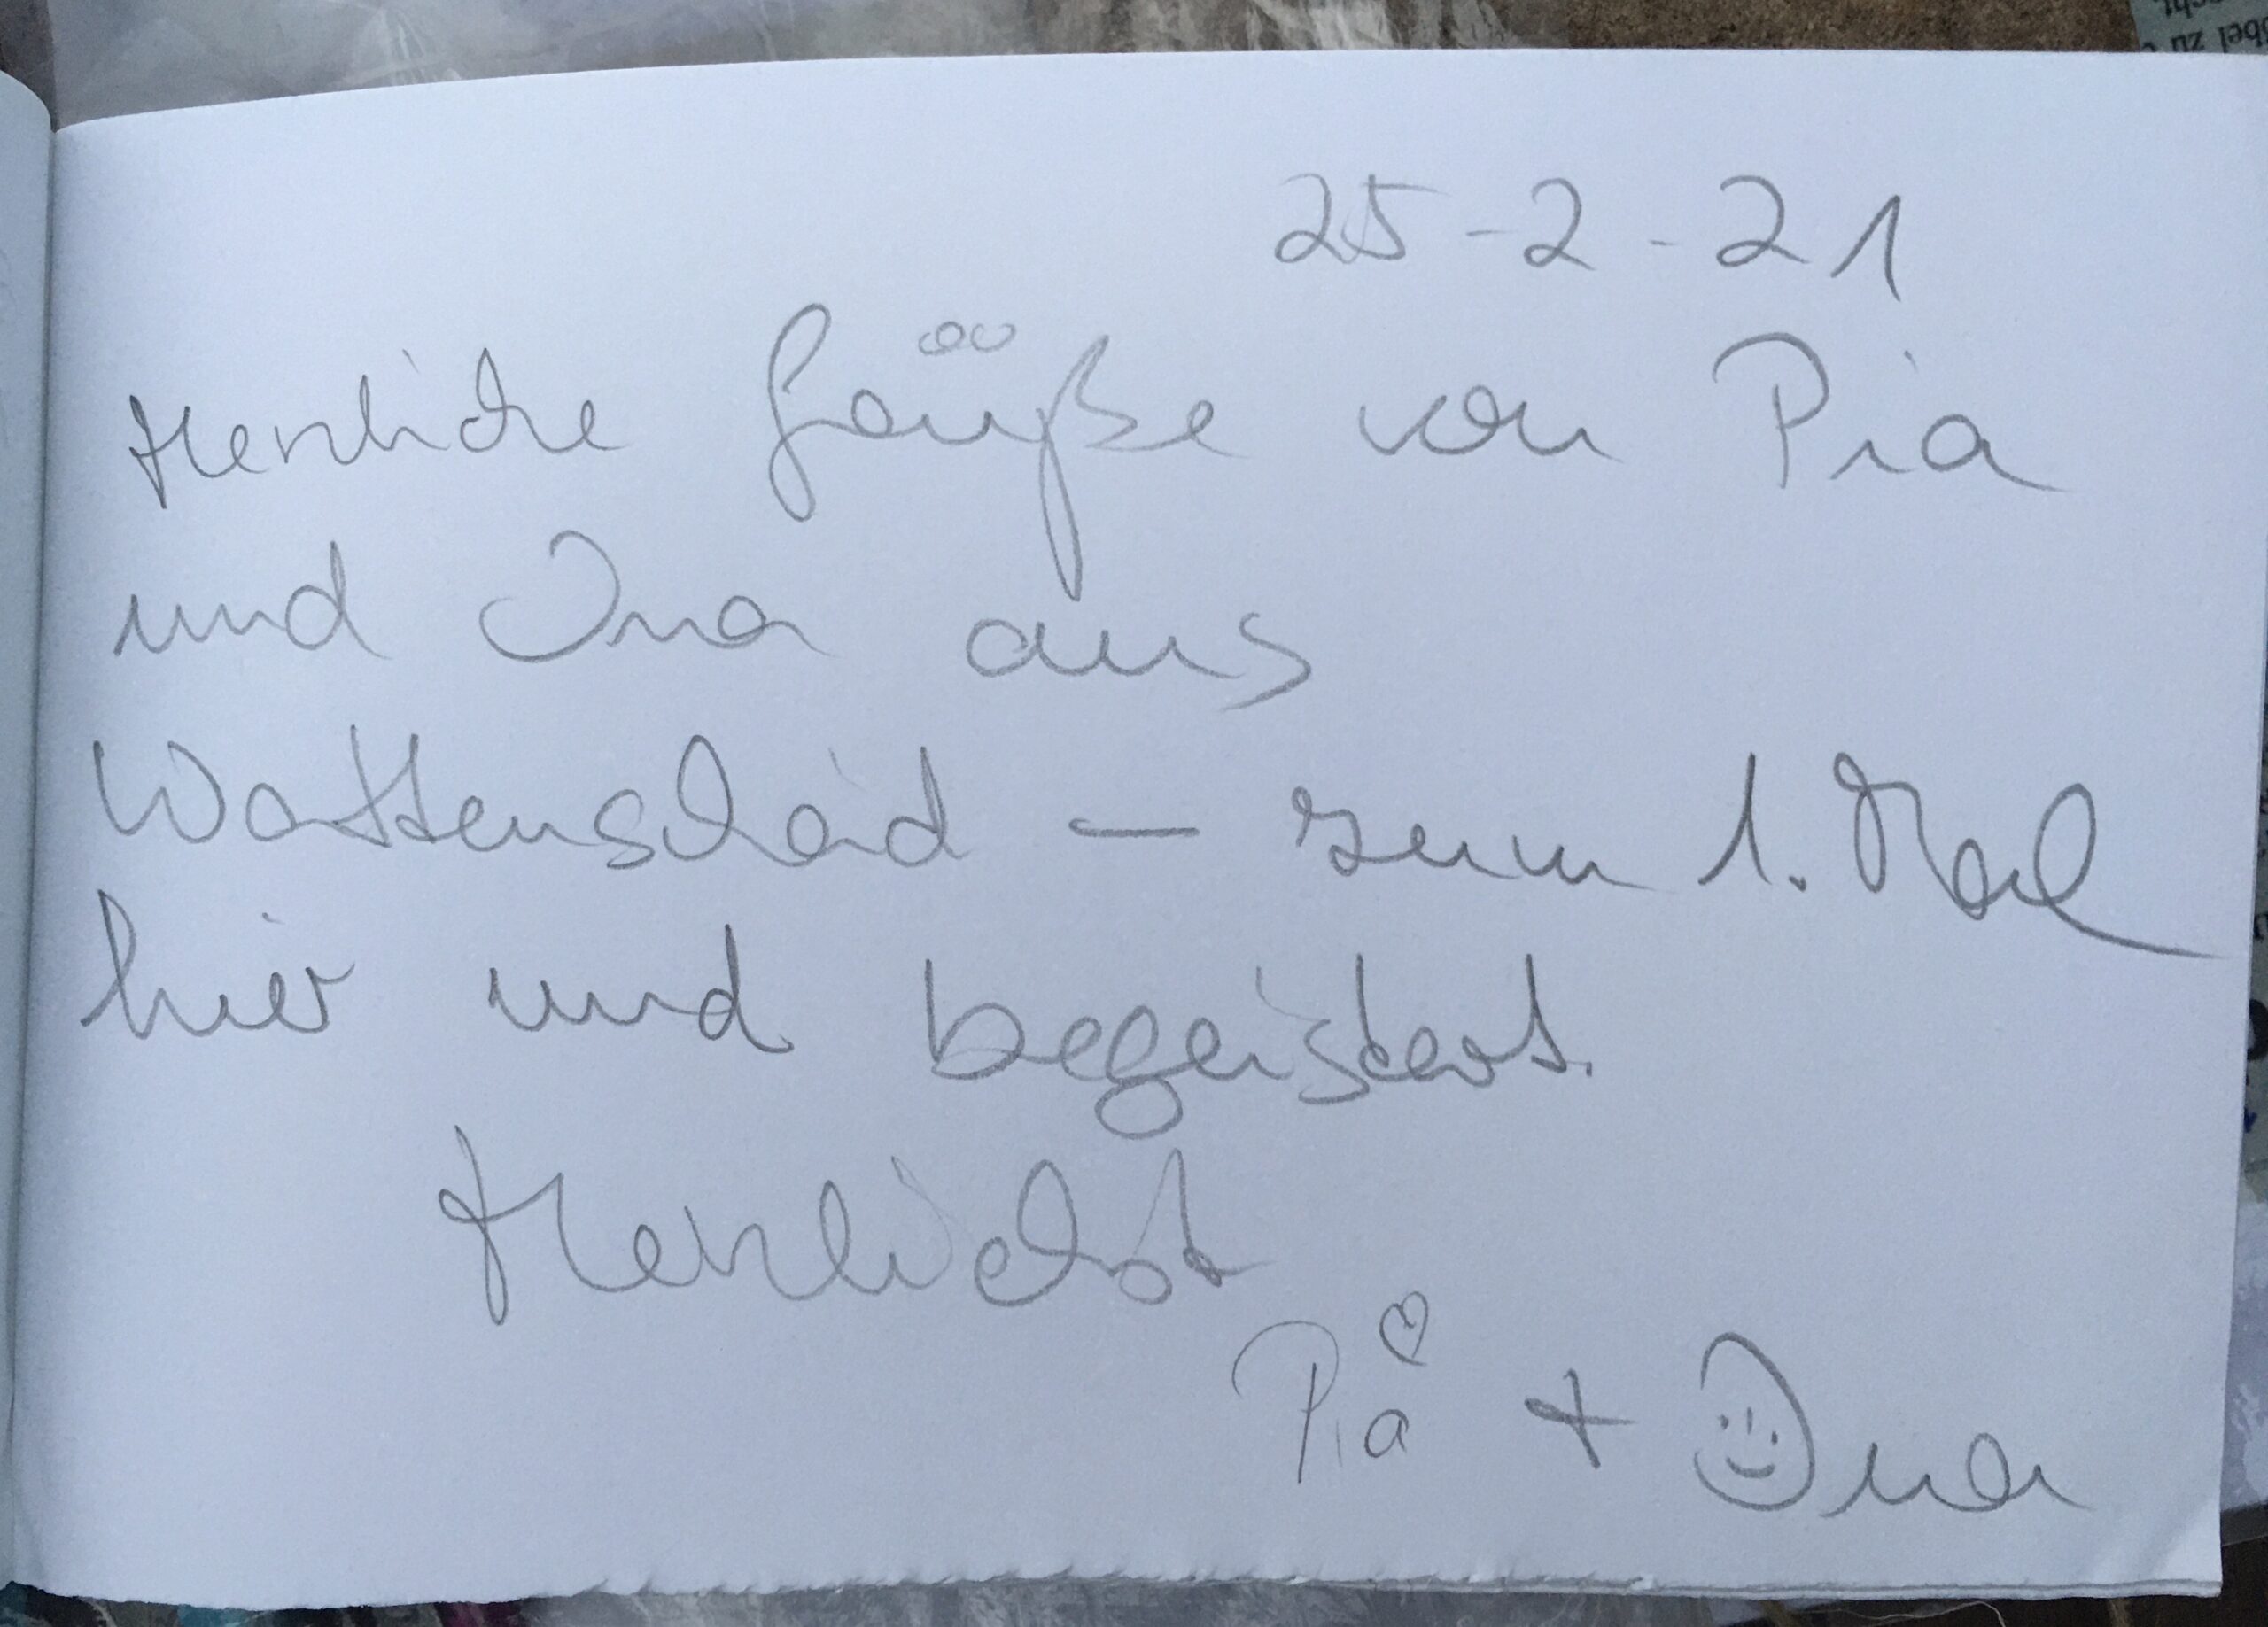 25-2-21
Herzliche Grüße von Pia
und Ina aus
Wattenscheid – zum 1. Mal
hier und begeistert.
Herzlichst
Pia + Ina